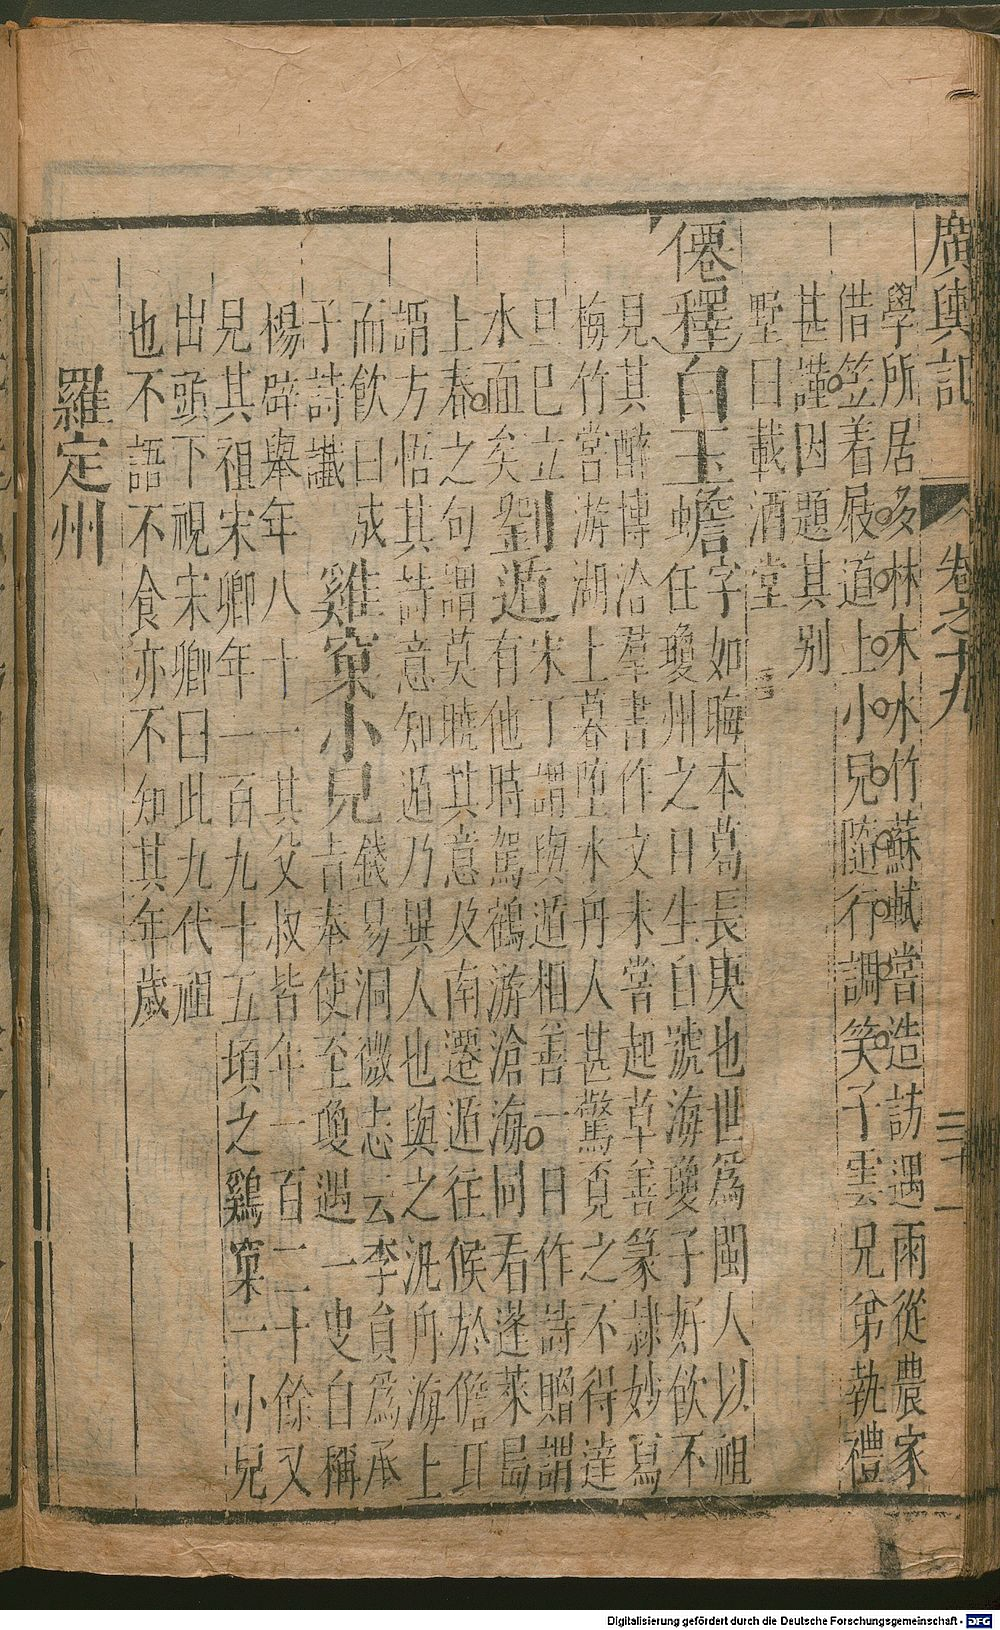 廣輿記 卷之十九 三十一
學所居多林木水竹蘇軾嘗造訪遇雨從農家
借笠着屐道上小兒隨行調笑子雲兄弟執禮
甚謹因題其別
墅曰載酒堂
僊釋白玉蟾字如晦本葛長庚也世爲閩人以祖
任瓊州之日生自號海瓊子好飲不
見其醉博洽羣書作文未嘗起草善篆隸妙寫
梅竹嘗游湖上暮墮水舟人甚驚覓之不得達
旦已立
水面矣
劉遁
宋丁謂與遁相善一日作詩贈謂
有他時駕鶴游滄海同看蓬萊島
上春之句謂莫曉其意及南遷遁往候於儋耳
謂方悟其詩意知遁乃異人也與之汎舟海上
而飲曰成
子詩讖
雞窠小兒
錢易洞微志云李員爲承
旨奉使至瓊遇一叟自稱
楊辟舉年八十一其父叔皆年一百二十餘又
見其祖宋卿年一百九十五頃之鷄窠一小兒
出頭下視宋卿曰此九代祖
也不語不食亦不知其年歲
羅定州
Digitalisierung gefördert durch die Deutsche Forschungsgemeinschaft - DFG